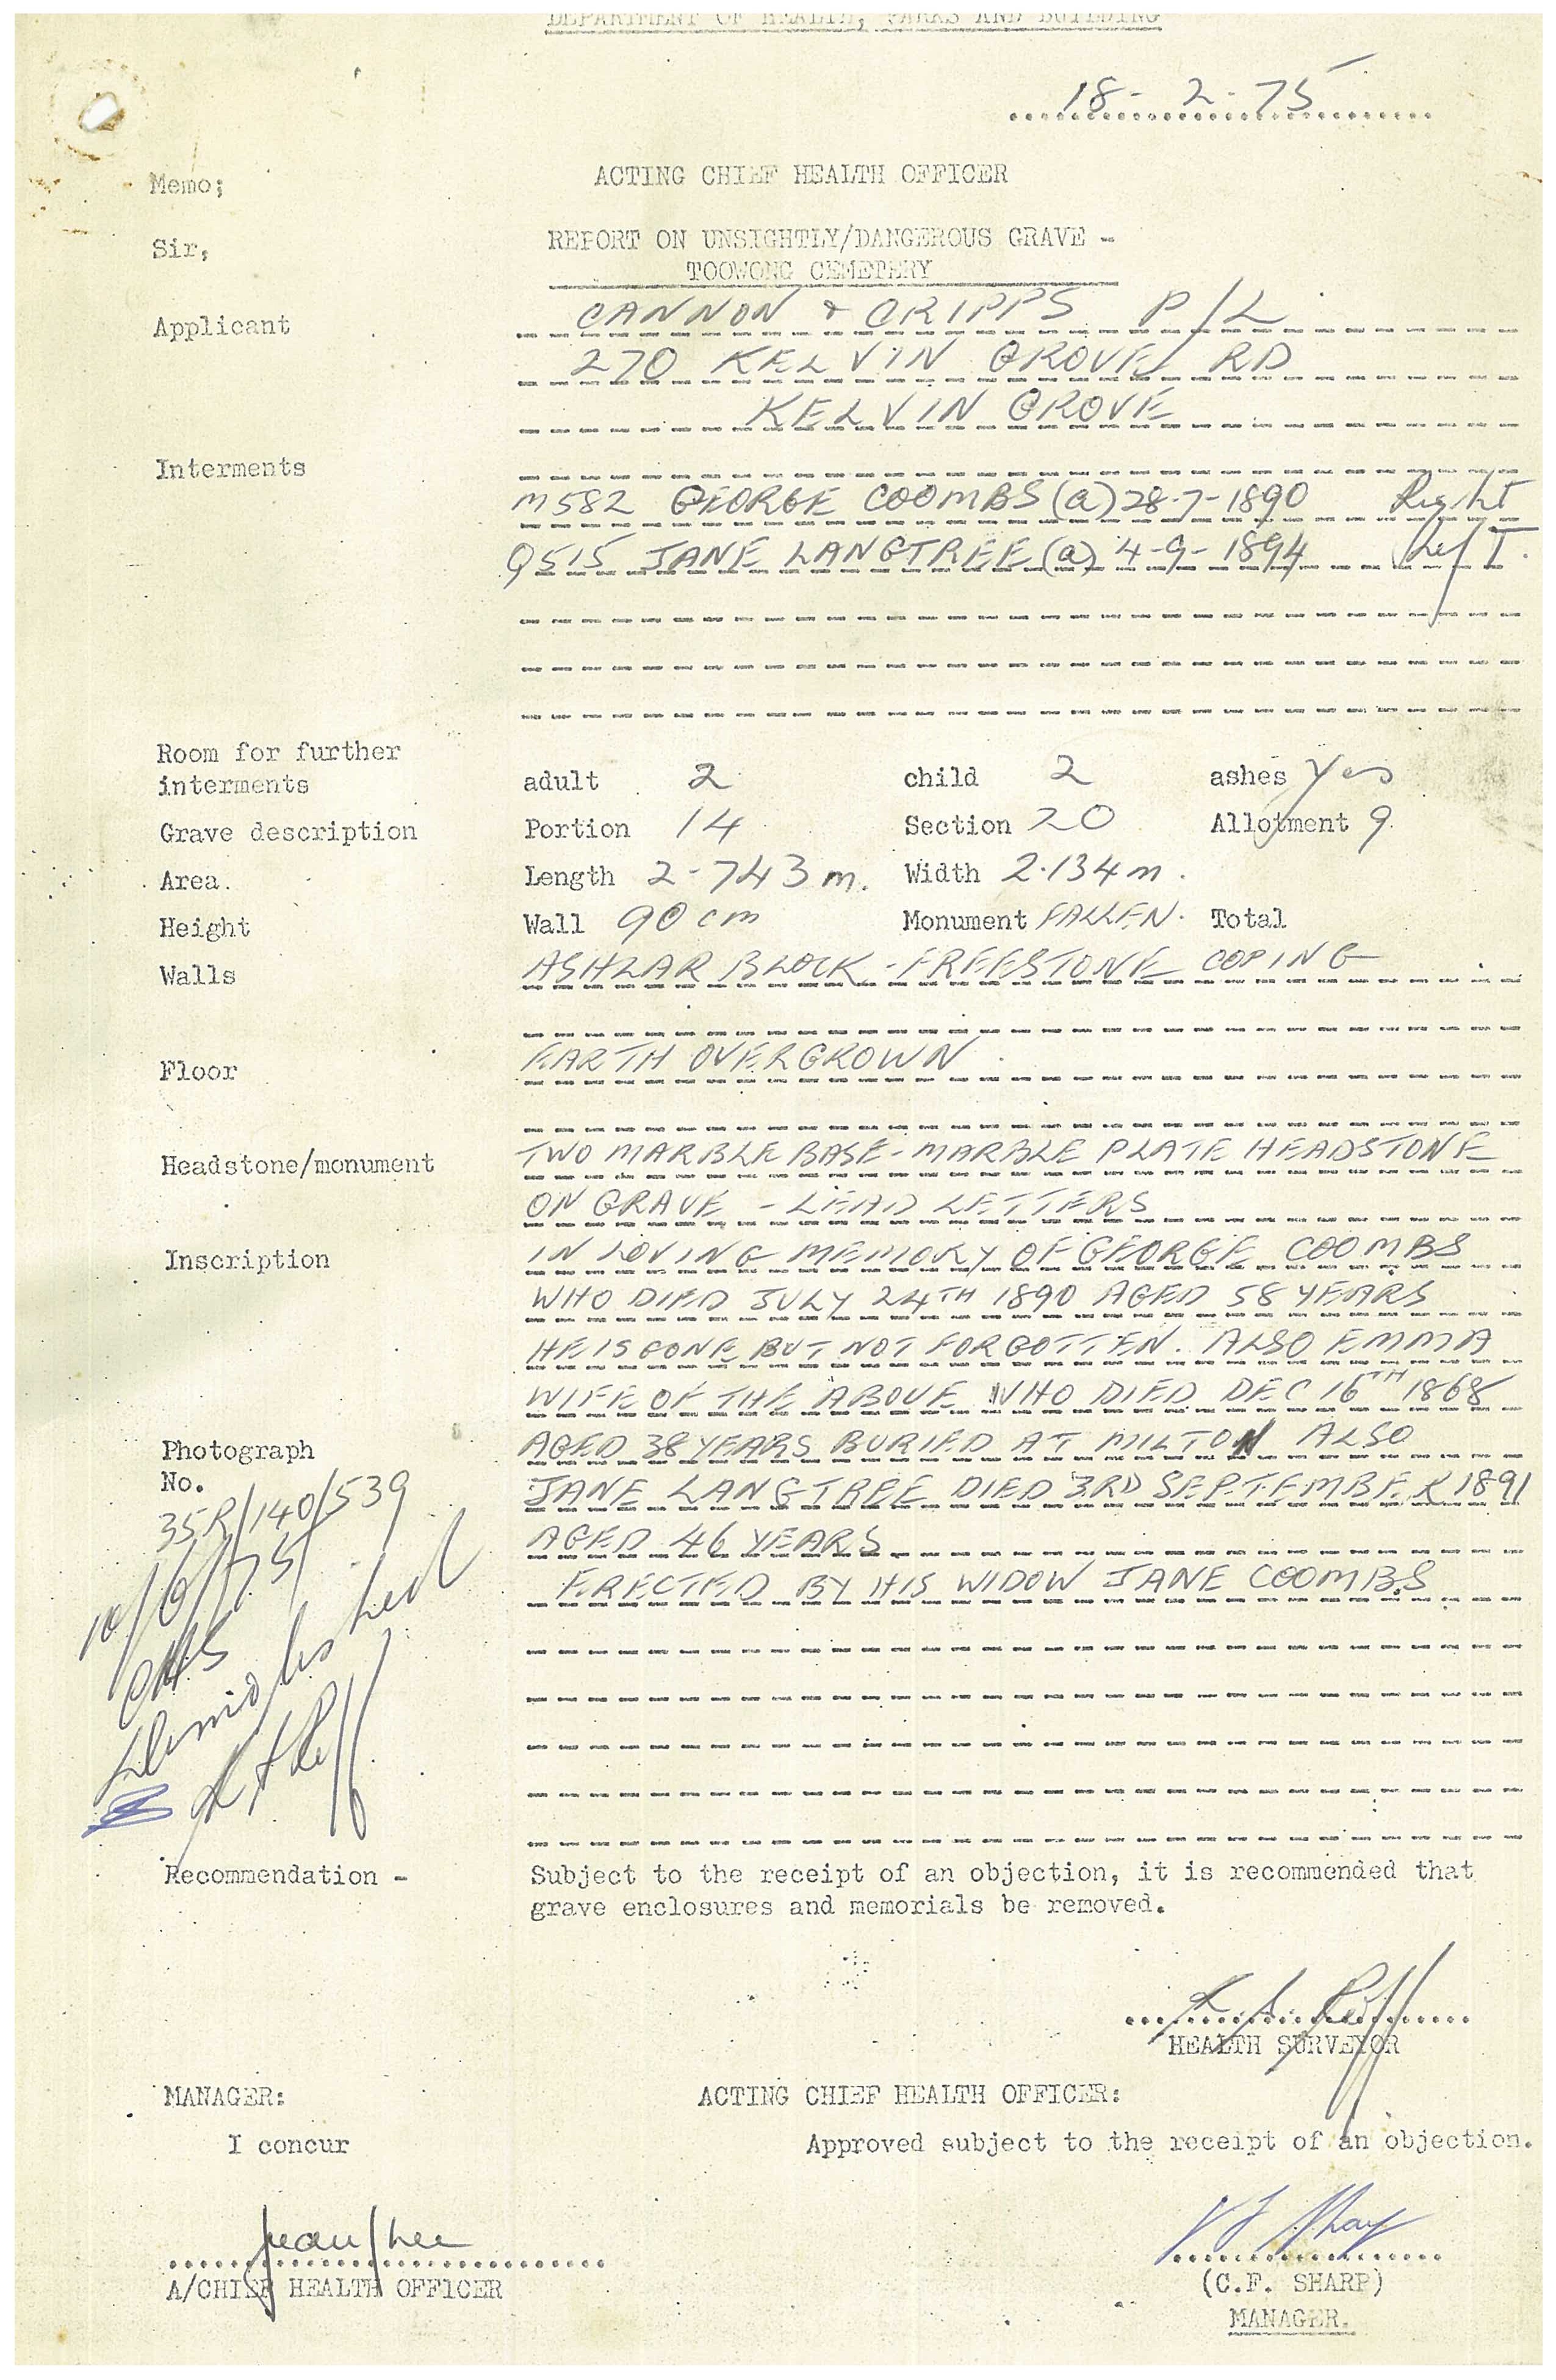 DEPARTMENT OF HEALTH, PARKS AND BUILDING
18-2-75
Memo; ACTING CHIEF HEALTH OFFICER
Sir, REPORT ON UNSIGHTLY/DANGEROUS GRAVE -
TOOWONG CEMETERY
Applicant CANNON & CRIPPS P/L
270 KELVIN GROVE RD
KELVIN GROVE
Interments
M582 GEORGE COOMBS (a) 28-7-1890 Right
Q515 JANE LANGTREE (a) 4-9-1894 Left.
Room for further
interments adult 2 child 2 ashes Yes
Grave description Portion 14 Section 20 Allotment 9.
Area. Length 2-743 m. Width 2.134 m.
Height Wall 90 cm Monument FALLEN. Total
Walls ASHLAR BLOCK - FREESTONE COPING
Floor EARTH OVERGROWN.
Headstone/monument TWO MARBLE BASE - MARBLE PLATE HEADSTONE
ON GRAVE - LEAD LETTERS
Inscription IN LOVING MEMORY OF GEORGE COOMBS
WHO DIED JULY 24TH 1890 AGED 58 YEARS
HE IS GONE BUT NOT FORGOTTEN. ALSO EMMA
WIFE OF THE ABOVE WHO DIED DEC 16TH 1868
Photograph AGED 38 YEARS BURIED AT MILTON ALSO
No. JANE LANGTREE DIED 3RD SEPTEMBER 1891
35R/140/539
AGED 46 YEARS
ERECTED BY HIS WIDOW JANE COOMBS
10/6/75
CHS
Demolished
Recommendation - Subject to the receipt of an objection, it is recommended that
grave enclosures and memorials be removed.
HEALTH SURVEYOR
MANAGER: ACTING CHIEF HEALTH OFFICER:
I concur Approved subject to the receipt of an objection.
A/CHIEF HEALTH OFFICER (C.F. SHARP)
MANAGER.